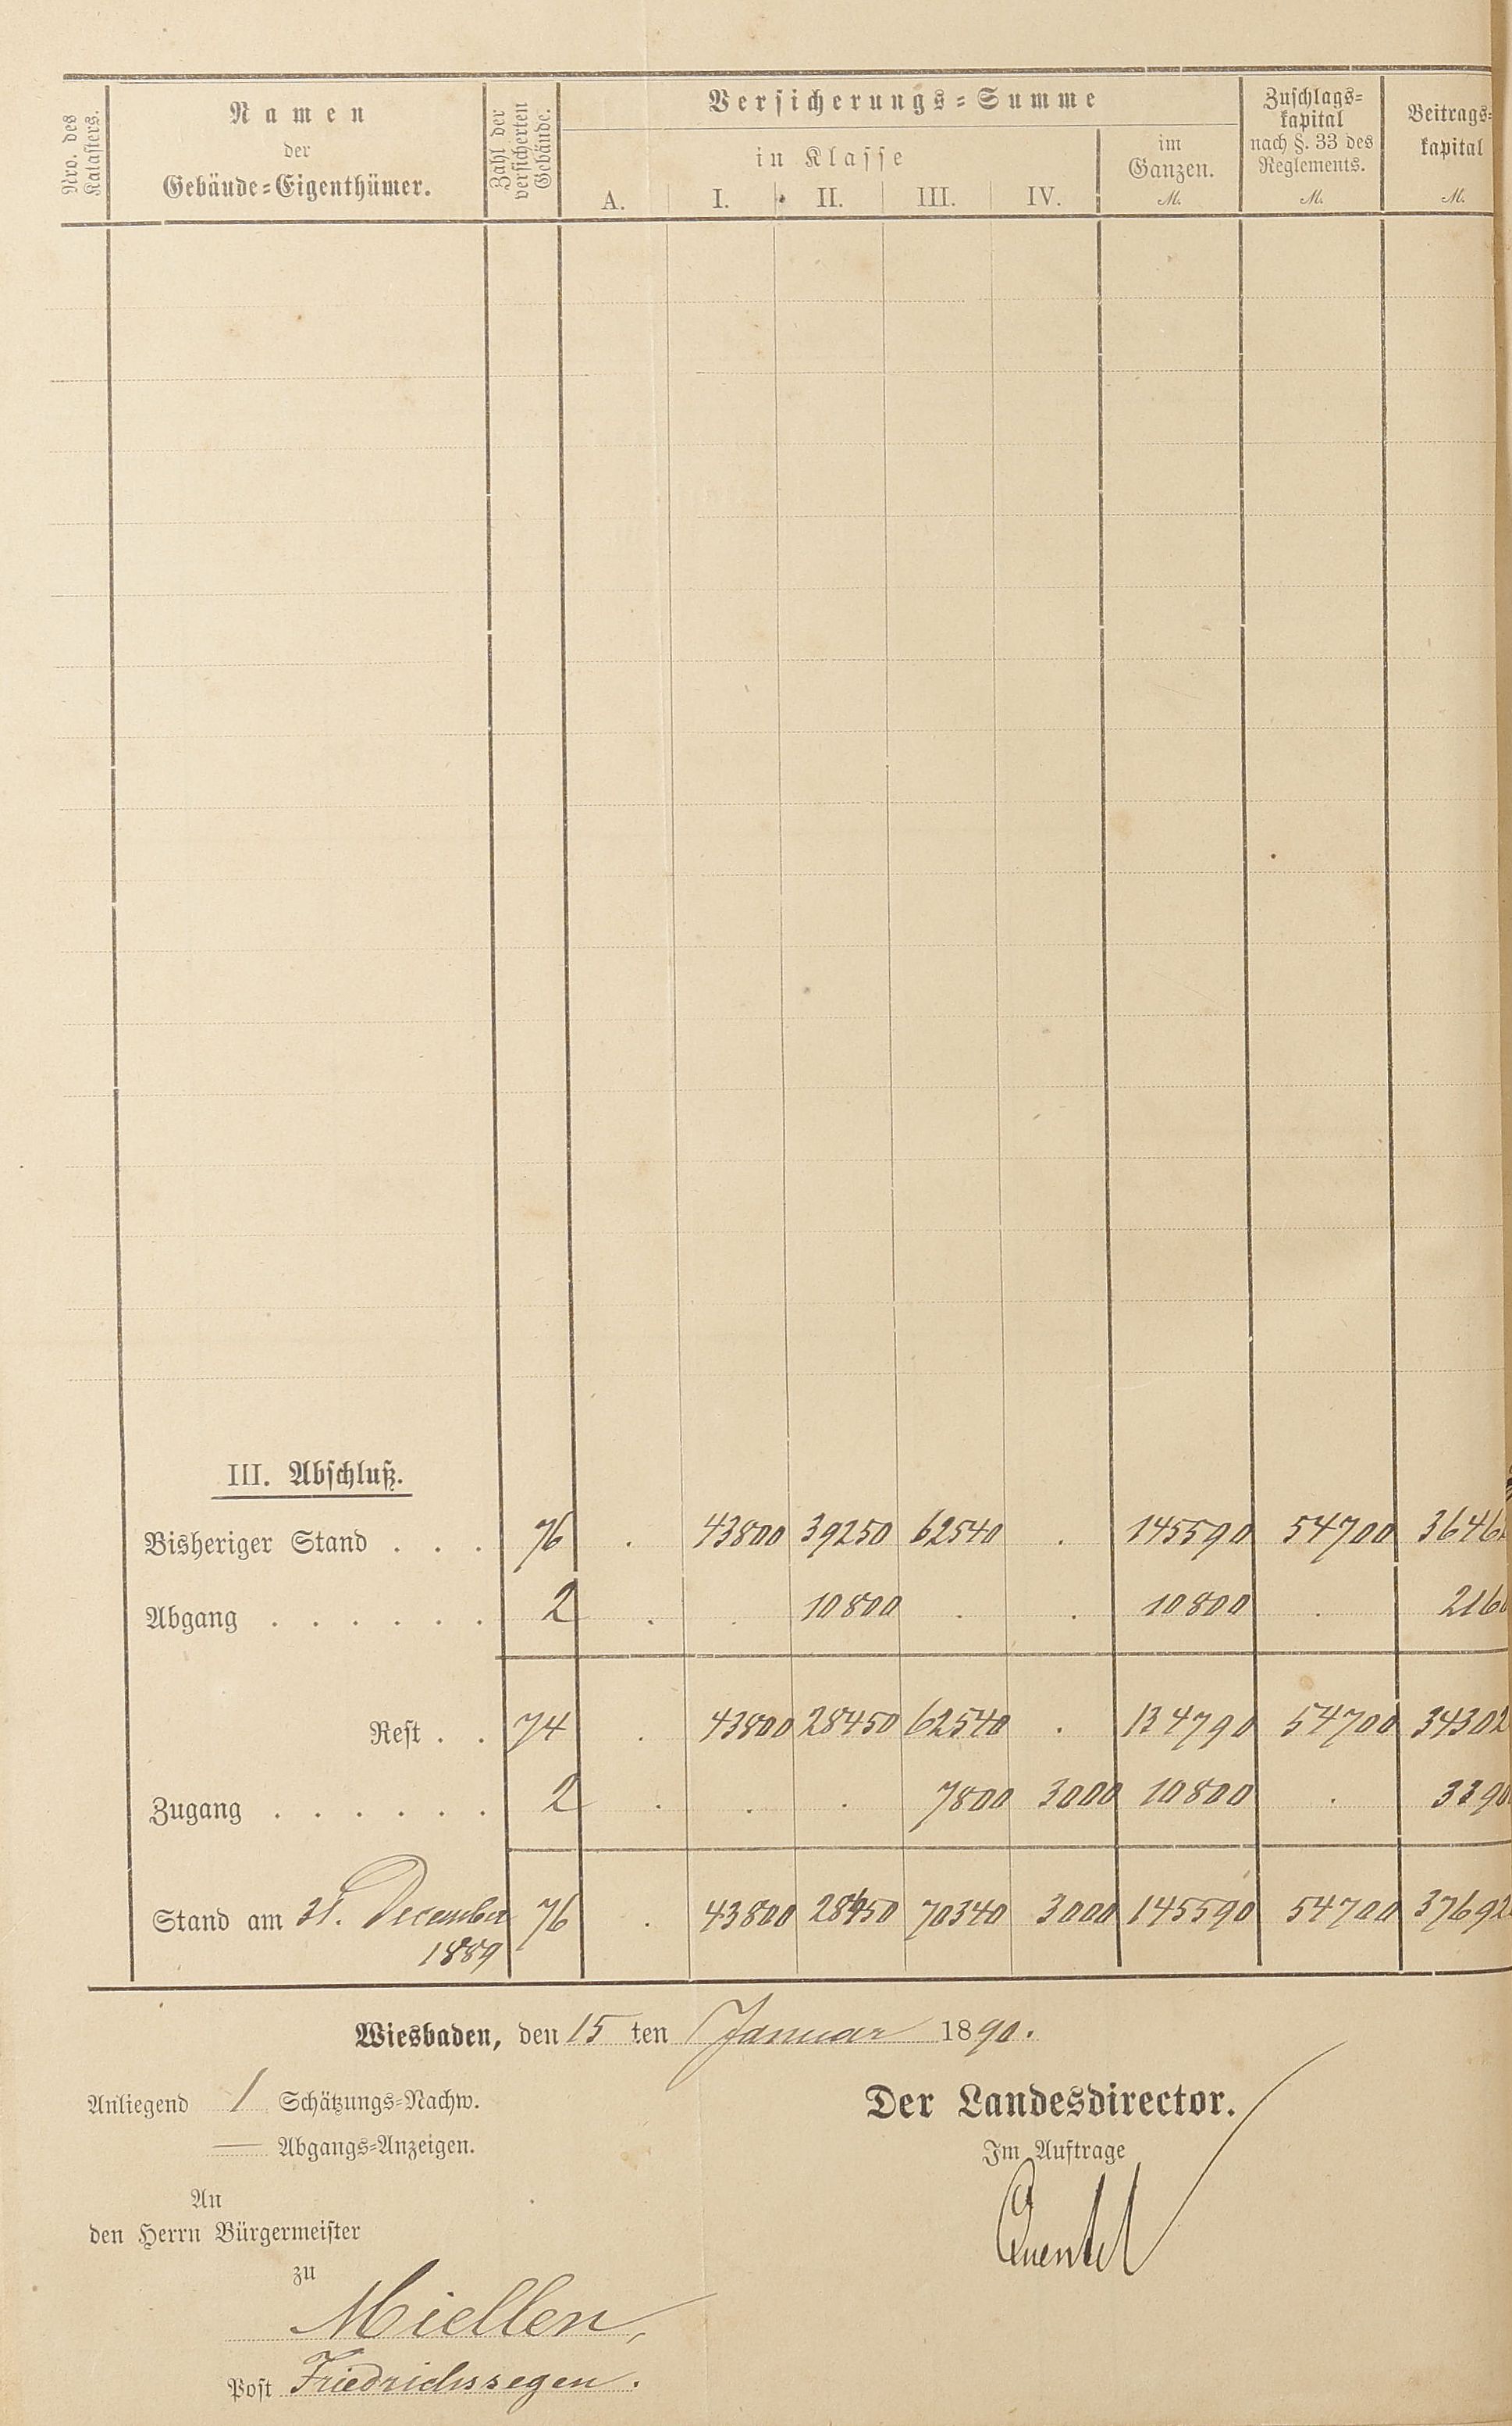 Nro. des Katasters.
Namen
der
Gebäude=Eigenthümer.
Zahl der versicherten Gebäude.
Versicherungs=Summe
in Klasse
A. I. II. III. IV.
im
Ganzen.
M.
Zuschlags=
kapital
nach §. 33 des
Reglements.
M.
Beitrags=
kapital
M.
III. Abschluß.
Bisheriger Stand . . . 76 . 43800 39250 62540 . 145590 54700
Abgang . . . . . . 2 . . 10800 . . 10800 .
Rest . . 74 . 43800 28450 62540 . 134790 54700 34302
Zugang . . . . . . 2 . . . 7800 3000 10800 .
Stand am 31. December 76 . 43800 28450 70340 3000 145590 54700
1889
Wiesbaden, den 15 ten Januar 1890.
Anliegend 1 Schätzungs=Nachw.
— Abgangs=Anzeigen.
Der Landesdirector.
Im Auftrage
An
den Herrn Bürgermeister
zu
Miellen,
Post Friedrichssegen.